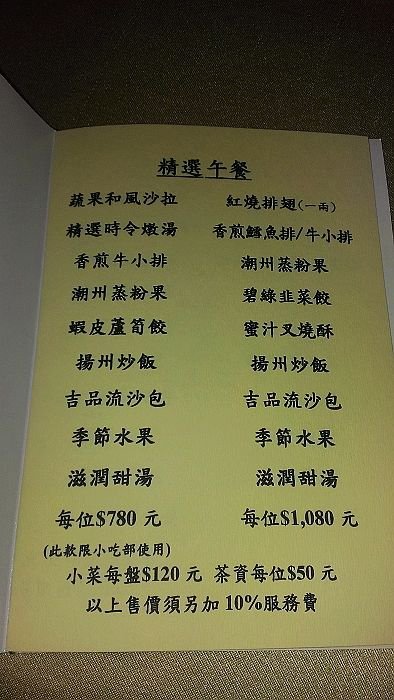 精選午餐
蔬果和風沙拉 紅燒排翅(一兩)
精選時令燉湯 香煎鱈魚排/牛小排
香煎牛小排 潮州蒸粉果
潮州蒸粉果 碧綠韭菜餃
蝦皮蘆筍餃 蜜汁叉燒酥
揚州炒飯 揚州炒飯
吉品流沙包 吉品流沙包
季節水果 季節水果
滋潤甜湯 滋潤甜湯
每位$780 元 每位$1,080 元
(此款限小吃部使用)
小菜每盤$120 元 茶資每位$50 元
以上售價須另加 10%服務費